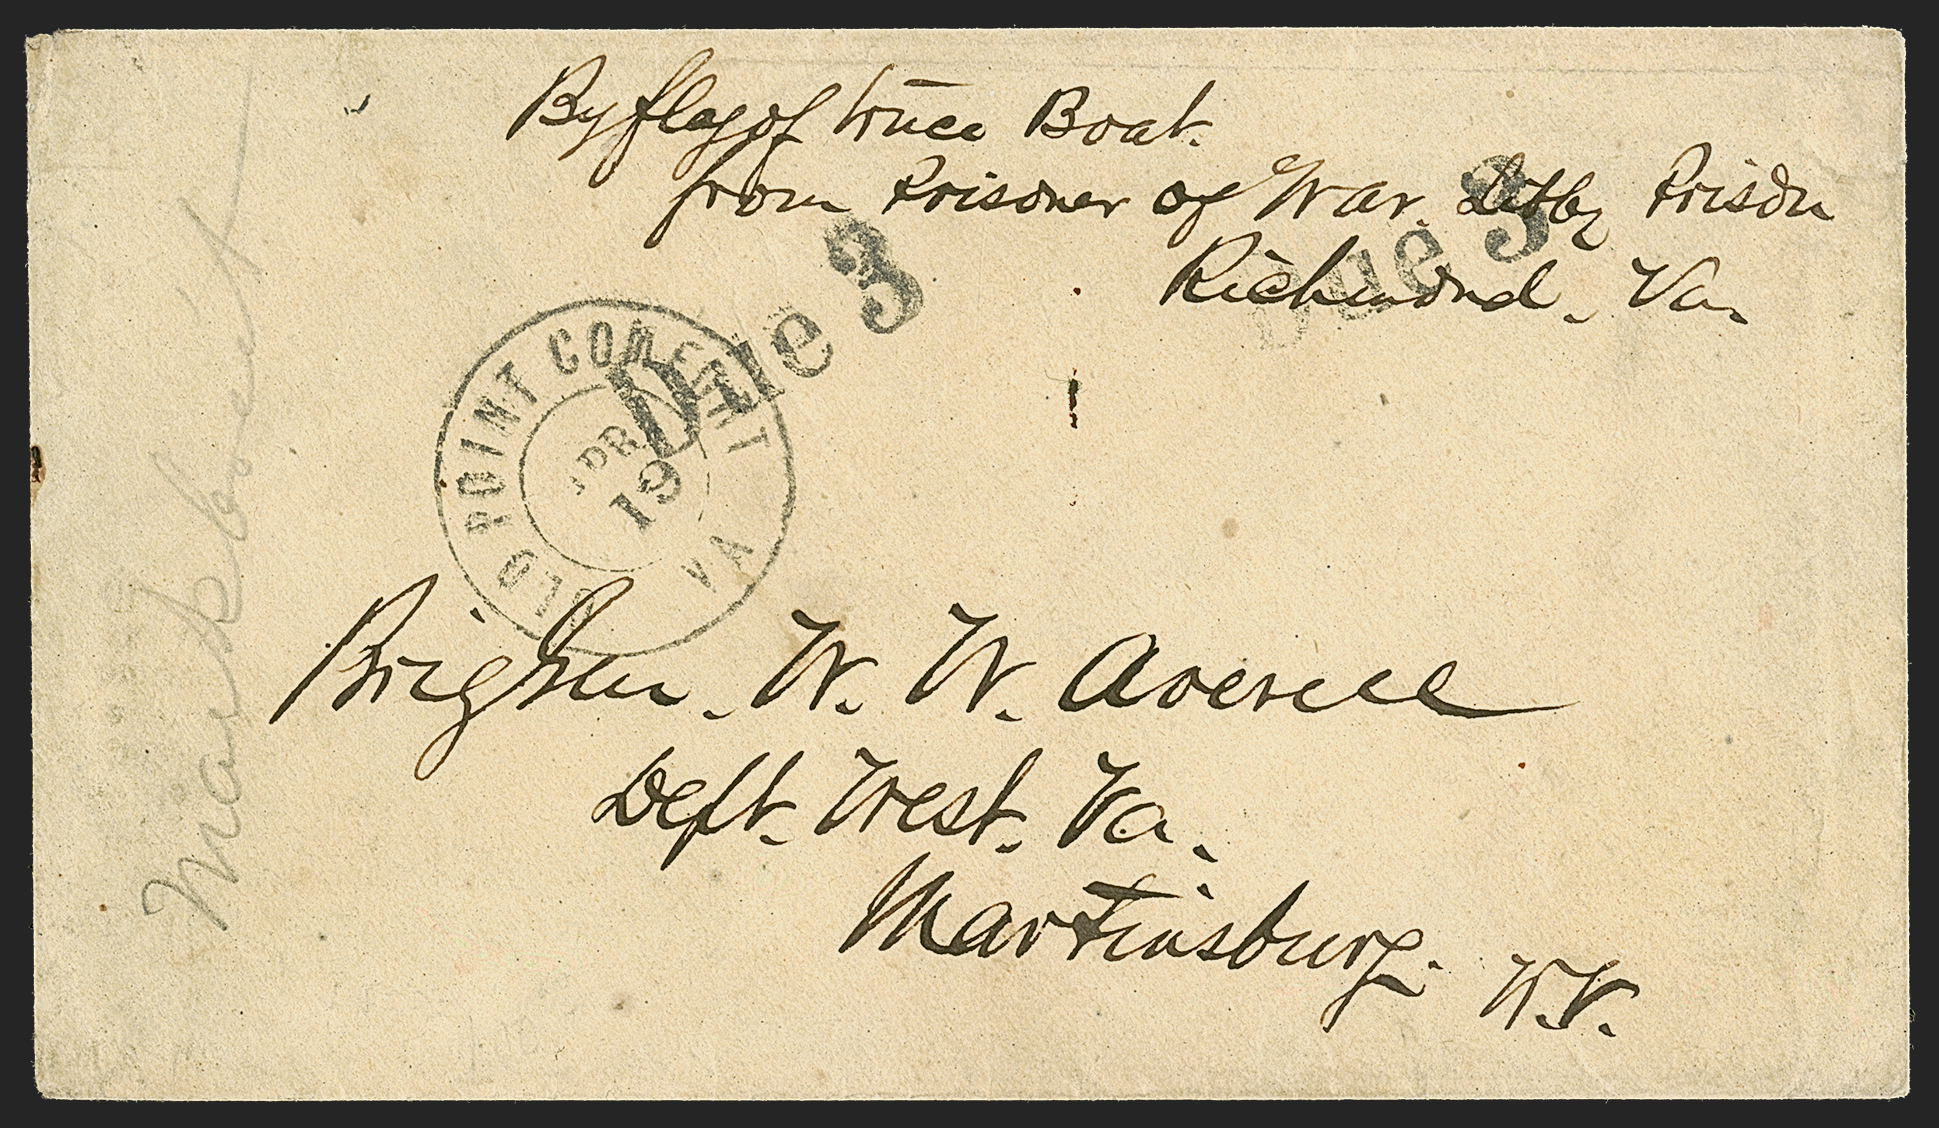 By flag of truce Boat.
from Prisoner of War. Libby Prison
Richmond, Va.
Due 3
Due 3
OLD POINT COMFORT VA
APR
19
Brig Gen. W. W. Averell
Dept. West. Va.
Martinsburg. W.V.